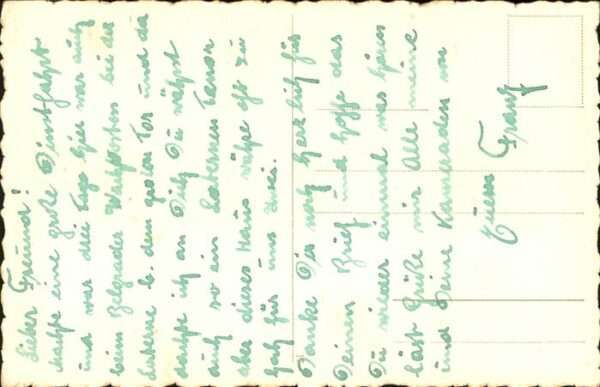 Lieber Freund!
Machte eine große Dienstfahrt
und war drei Tage hier war auch
beim Belgrader Wachtposten bei der
Laterne b. dem großen Tor und da
dachte ich an Dich Du
auch so ein Laternen davor
aber dieses Haus oft zu
für uns zwei.
Danke Dir noch herzlich für
Deinen Brief und hoffe das
Du wieder einmal was hören
läst Grüße mir Alle meine
und Deine Kameraden von
Euern Franz